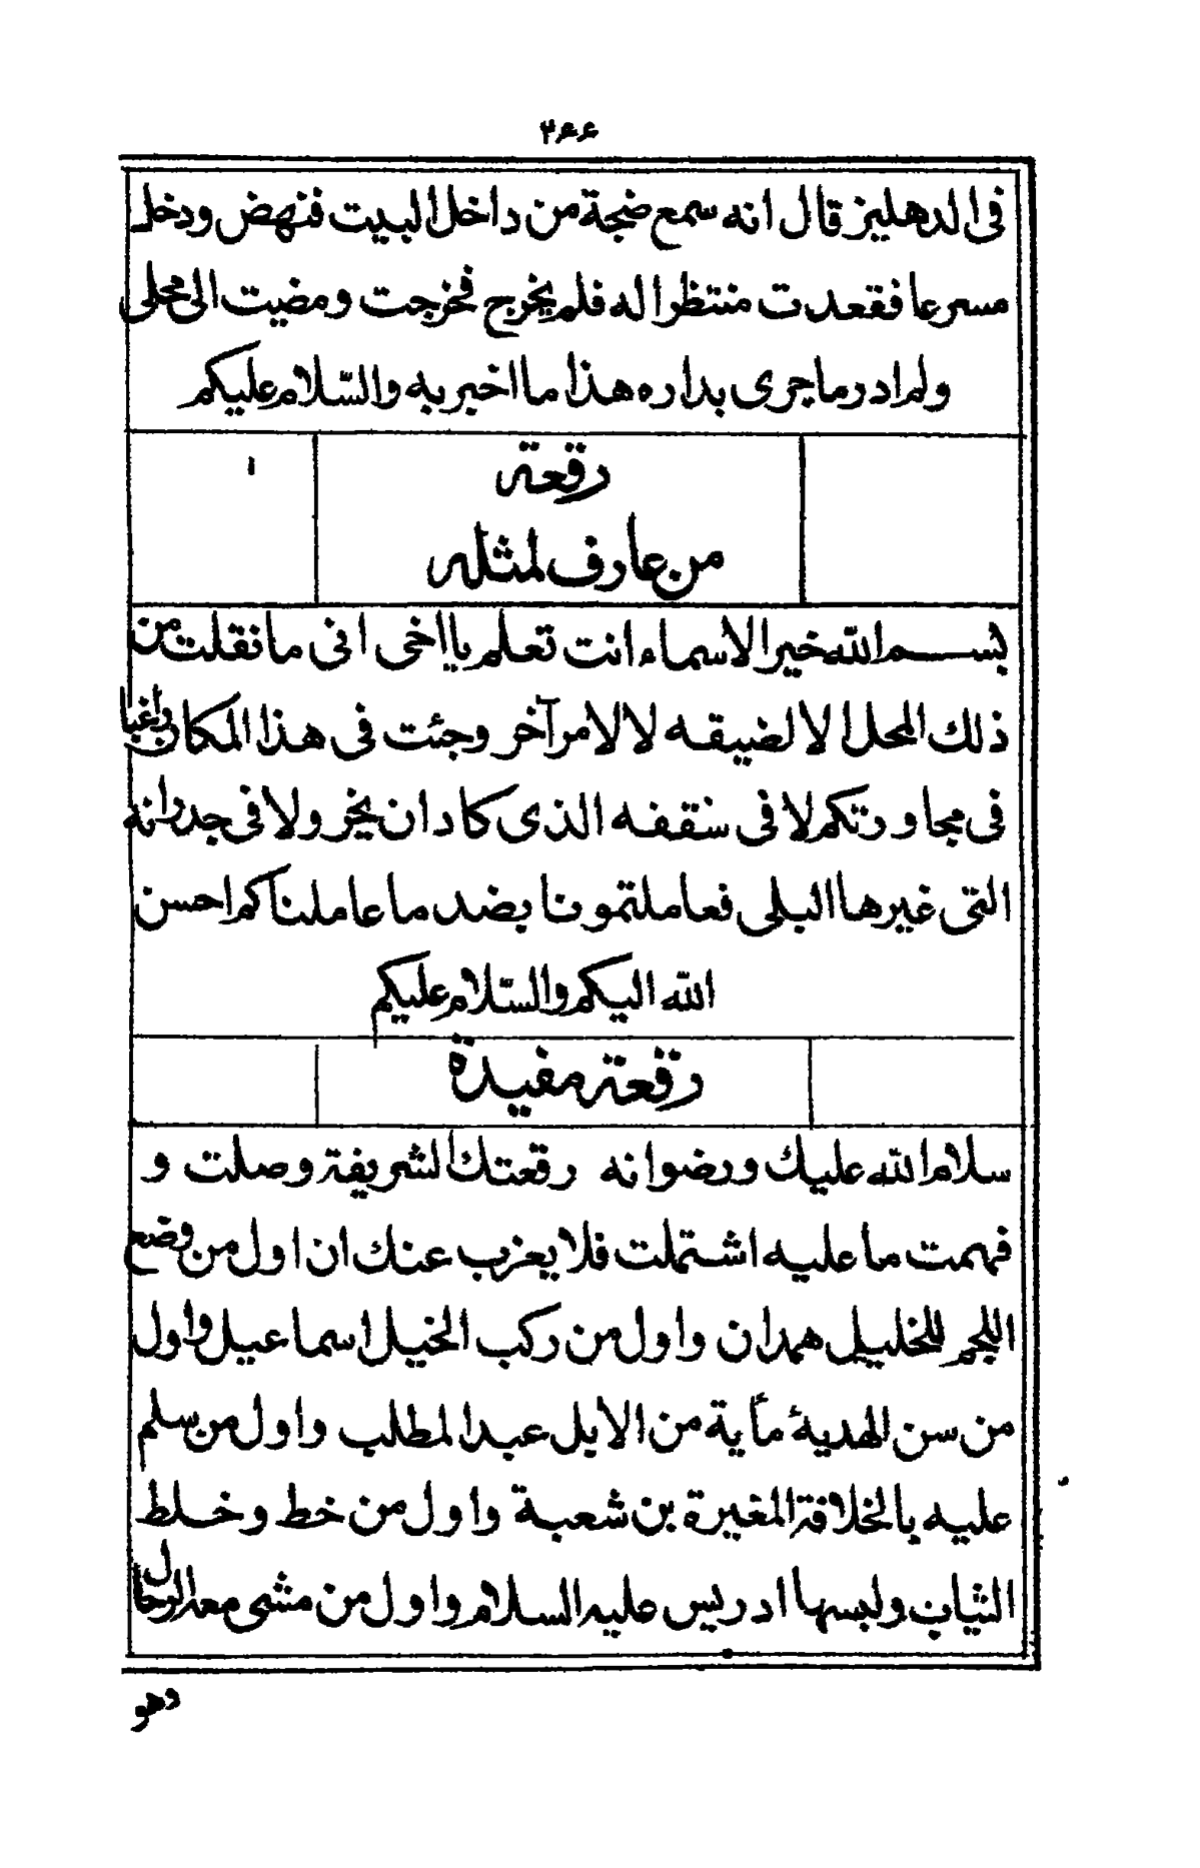 ۲۶۶
فى الدهليز قال انه سمع ضجة من داخل البيت فنهض ودخل
مسرعا فقعدت منتظرا له فلم يخرج فخرجت ومضيت الى محلى
ولم ادر ما جرى بداره هذا ما اخبر به والسّلام عليكم
رقعة
من عارف لمثله
بسم الله خير الاسماء انت تعلم يا اخى انى ما نقلت من
ذلك المحل الا لضيقه لا لامر آخر وجئت فى هذا المكان راغبا
فى مجاورتكم لا فى سقفه الذى كاد ان يخر ولا فى جدرانه
التى غيرها البلى فعاملتمونا بضد ما عاملناكم احسن
الله اليكم والسّلام عليكم
رقعة مفيدة
سلام الله عليك ورضوانه رقعتك الشريفة وصلت و
فهمت ما عليه اشتملت فلا يعزب عنك ان اول من وضع
اللجم للخليل همدان واول من ركب الخيل اسماعيل واول
من سن الهدية مأية من الابل عبد المطلب واول من سلم
عليه بالخلافة المغيرة بن شعبة واول من خط وخلط
الثياب ولبسها ادريس عليه السلام واول من مشى معه الرجال
وهو